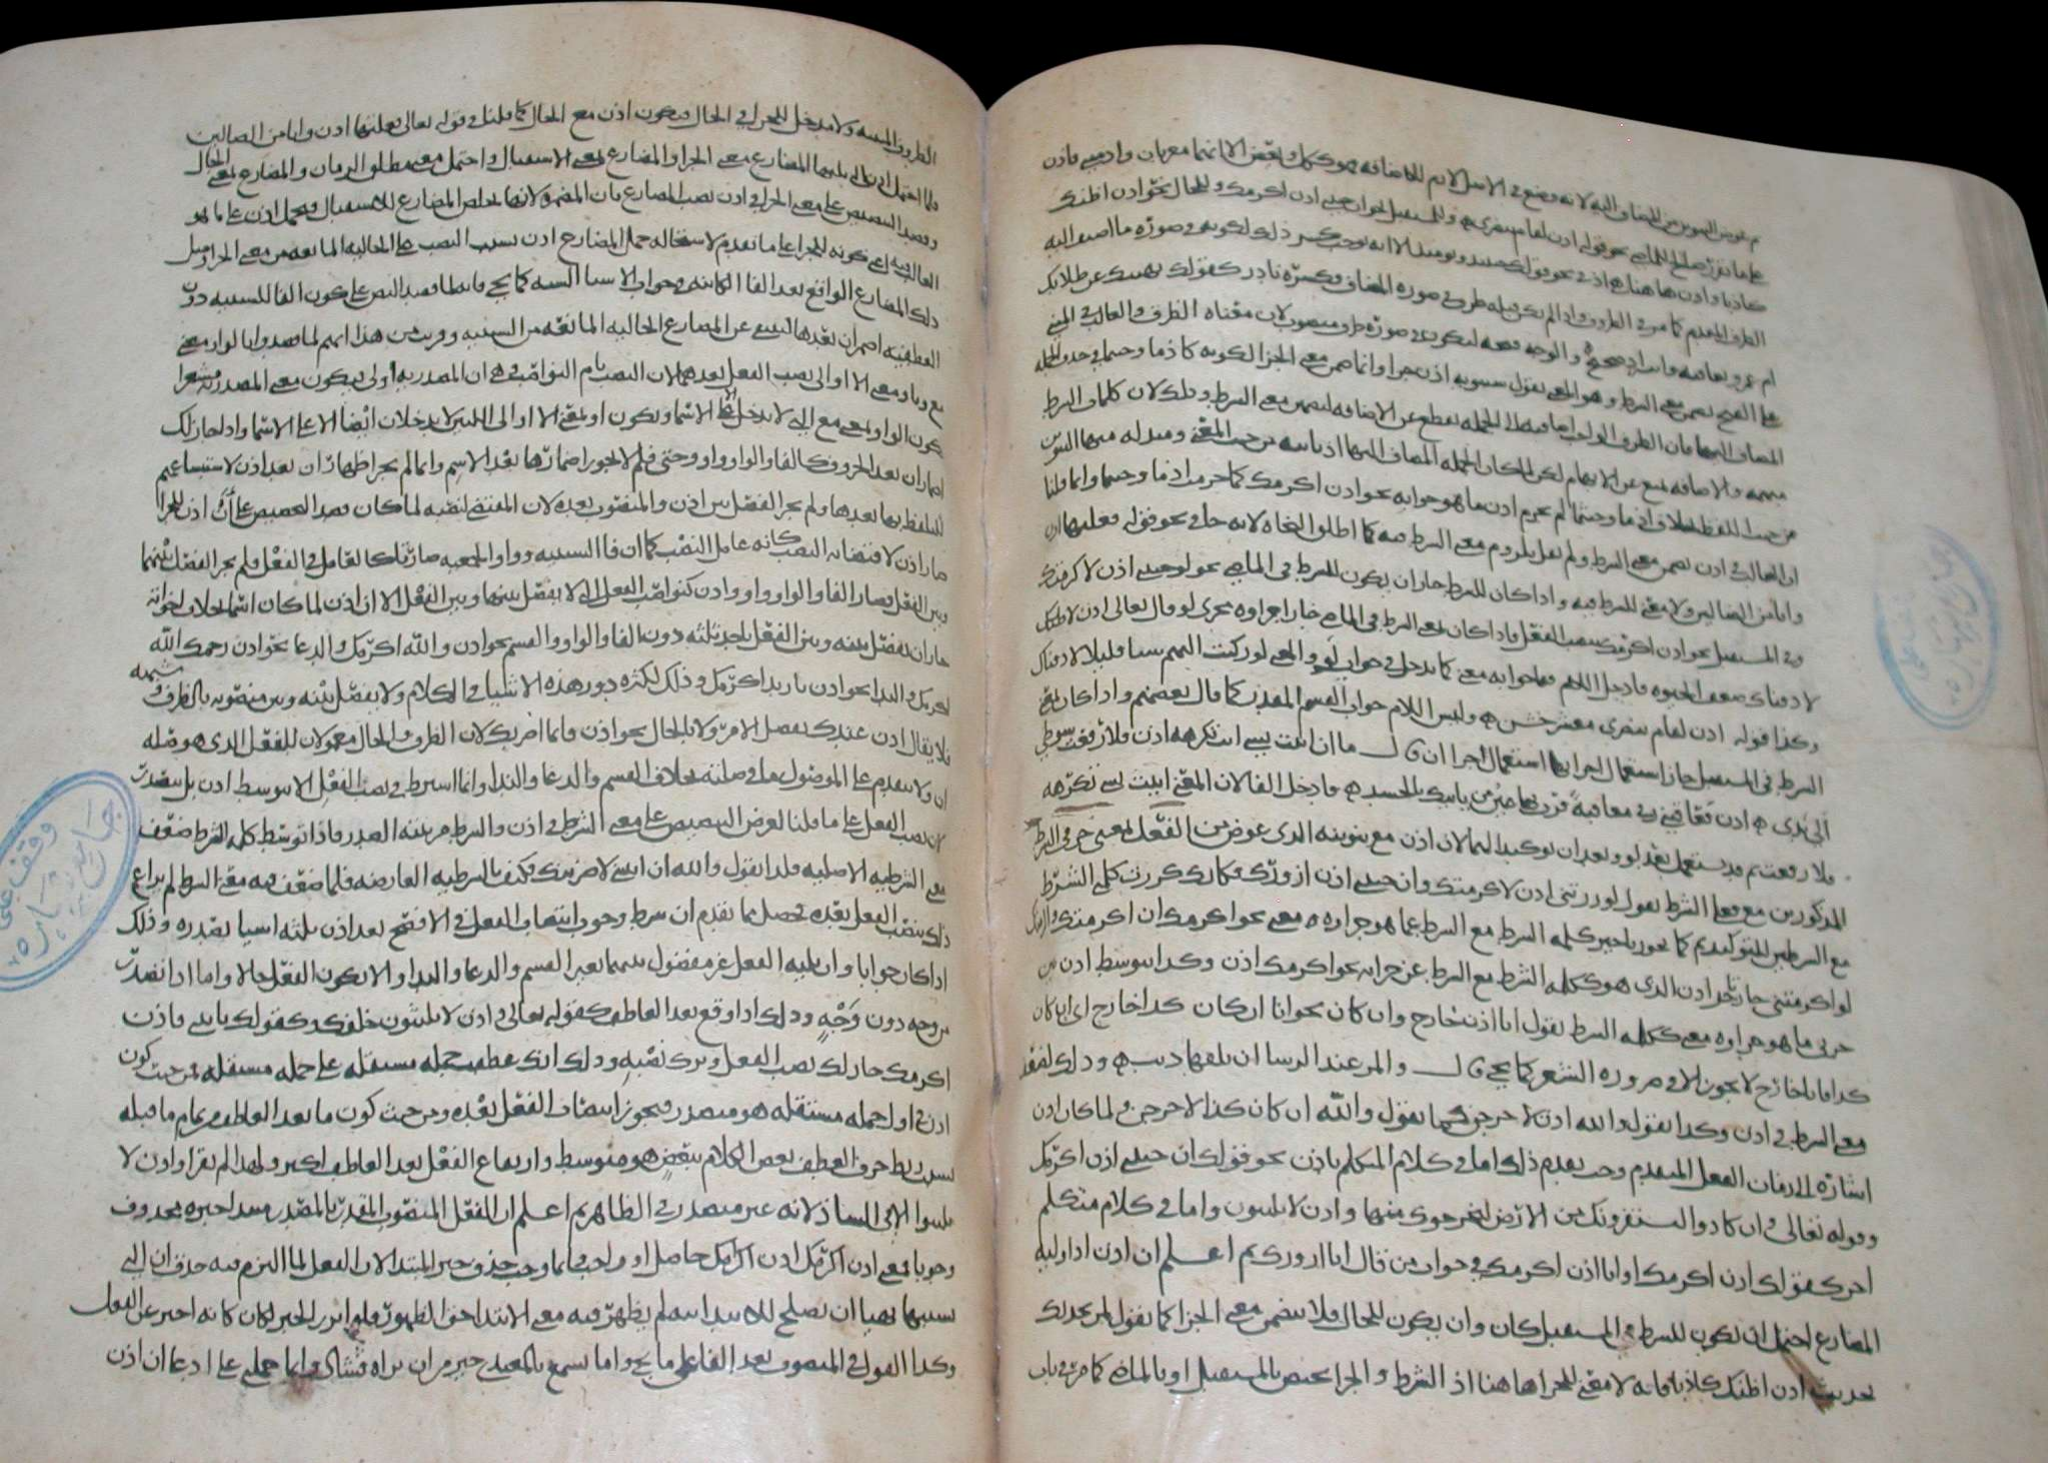 ثم عوض التنوين من المضاف اليه لانه وضع في الاصل لازم للاضافة فهو ككل وبعض الا انهما معربان واذ مبني فاذن
على ما تقرر صالح للماضي نحو قوله اذن لقام بنصري وللمستقبل نحو ان جئتني اذن اكرمك وللحال نحو اذن اظنك
كاذبا واذن ها هنا هي اذ في نحو قولك حينئذ ويومئذ الا انه كسر ذلك لكونه في صورة ما اضيف اليه
الظرف المقدم واذا لم يكن قبله ظرف في صورة المضاف فكسره نادر كقولك نهيتك عن طلابك
ام عمرو بعاقبة وانت اذ صحيح والوجه فتحه ليكون في صورة ظرف منصوب لان معناه الظرف والغالب في المبني
على الفتح تضمن معنى الشرط وهو المعنى بقول سيبويه اذن جزاء وانما ضمن معنى الجزاء لكونه كاذما وحيثما في حذف الجملة
المضاف اليها فان الظرف الواجب اضافته الى الجملة يقطع عن الاضافة لتضمن معنى الشرط وذلك لان كلمات الشرط
مبهمة والاضافة تمنع عن الابهام لكن لما كان الجملة المضاف اليها اذ ثابتة من حيث المعنى ومبدلة منها التنوين
من حيث اللفظ بخلاف اذما وحيثما لم يجزم اذن ما هو جوابه نحو اذن اكرمك كما جزمت اذما وحيثما وانما قلنا
ان الغالب في اذن تضمن معنى الشرط ولم نقل بلزوم معنى الشرط فيه كما اطلق النحاة لانه جاء في نحو قوله فعلتها اذن
وانا من الضالين ولا معنى للشرط فيه واذا كان للشرط جاز ان يكون للشرط في الماضي نحو لو جئتني اذن لاكرمتك
وفي المستقبل نحو اذن اكرمك بنصب الفعل فاذا كان لمعنى الشرط في الماضي جاز اجراؤه مجرى لو قال تعالى اذن لاذقناك
لاذقناك ضعف الحيوة فادخل اللام في جوابه معنى كما تدخل في جواب لو والمعنى لو ركنت اليهم شيئا قليلا لاذقناك
وكذا قوله اذن لقام بنصري معشر خشن وليس اللام جواب القسم المقدر كما قال بعضهم واذا كان بمعنى
الشرط في المستقبل جاز استعمال الجزاء استعمال اجزاء ان قال ما ان اتيت بشيء انت تكرهه اذن فلا رفعت سوطي
الي يدي اذن فعاقبني ربي معاقبة قرت بها عين من ياتيك بالحسد فادخل الفاء لان المعنى ان اتيت بشيء تكرهه
فلا رفعت ثم قد يستعمل بعد لو وبعد ان توكيدا لهما لان اذن مع تنوينه الذي عوض من الفعل بمعنى حرفي الشرط
المذكورين مع فعلي الشرط تقول لو زرتني اذن لاكرمتك وان جئتني اذن ازورك فكانك كررت كلمتي الشرط
مع الشرطين للتوكيد ثم كما يجوز تاخير كلمة الشرط مع الشرط عما هو جزاؤه معنى نحو اكرمك ان اكرمتني
لو اكرمتني جاز تاخير اذن الذي هو ككلمة الشرط مع الشرط عن جزائه نحو اكرمك اذن وكذا يتوسط اذن بين
جزئي ما هو جزاؤه معنى ككلمة الشرط تقول انا اذن خارج وان كان نحو انا ان كان كذا خارج اي ان كان
كذا فانا خارج لا يجوز الا في ضرورة الشعر كما يجيء قال والمرء عند الرشا ان يلقها ذيب وذلك لضعف
معنى الشرط في اذن وكذا تقول والله اذن لاخرجن كما تقول والله ان كان كذا لاخرجن ولما كان اذن
اشارة الى زمان الفعل المتقدم وجب تقدم ذلك اما في كلام المتكلم باذن نحو قولك ان جئتني اذن اكرمك
وقوله تعالى وان كادوا ليستفزونك من الارض ليخرجوك منها واذن لا يلبثون واما في كلام متكلم
اخر كقولك اذن اكرمك او انا اذن اكرمك في جواب من قال انا ازورك ثم اعلم ان اذن اذا وليه
المضارع احتمل ان تكون للشرط في المستقبل كان وان يكون للحال فلا يتضمن معنى الجزاء كما تقول لمن يحدثك
بحديث اذن اظنك كاذبا فانه لا معنى للجزاء ها هنا اذ الشرط والجزاء يختص بالمستقبل او بالماضي كما مر في باب
الظروف المبنية ولا مدخل للجزاء في الحال فيكون اذن مع الحال كما قلنا في قوله تعالى فعلتها اذن وانا من الضالين
فلما احتمل اذن التي يليها المضارع معنى الجزاء والمضارع بمعنى الاستقبال واحتمل معنى مطلق الزمان والمضارع بمعنى الحال
وقصد التنصيص على معنى الجزاء في اذن نصب المضارع بان المضمرة لانها تخلص المضارع للاستقبال فيحمل اذن على ما هو
الغالب فيه اي كونه للجزاء على ما تقدم لاستحالة حمل المضارع اذن بسبب النصب على الحالية المانعة من معنى الجزاء ومثل
ذلك المضارع الواقع بعد الفاء الكائنة في جواب الاشياء الستة كما يجيء فانه لما قصد النص على كون الفاء للسببية دون
العطفية اضمر ان بعدها ليمتنع عن المضارع الحالية المانعة من السببية وقريب من هذا انهم لما قصدوا بالواو معنى
مع وباو معنى الا او الى نصب الفعل بعدهما لان النصب بام النواصب هي ان المصدرية اولى فيكون معنى المصدرية مشعرا
بكون الواو بمعنى مع التي لا تدخل الا الاسماء وبكون او بمعنى الا او الى اللتين لا يدخلان ايضا الا على الاسماء واذا جاز لك
اضمار ان بعد الحروف كالفاء والواو واو وحتى فلم لا يجوز اضمارها بعد الاسم وانما لم يجز اظهار ان بعد اذن لاستبشاعهم
للتلفظ بها بعدها ولم يجز الفصل بين اذن والمنصوب بعده لان المقتضي لنصبه لما كان قصد التنصيص على ان اذن للجزاء
صار اذن لاقتضائه النصب كانه عامل النصب كما ان فاء السببية وواو الجمعية صارتا كالعامل في الفعل فلم يجز الفصل بينهما
وبين الفعل فصار الفاء والواو واو واذن كنواصب الفعل التي لا يفصل بينها وبين الفعل الا ان اذن لما كان اسما بخلاف اخواته
جاز ان يفصل بينه وبين الفعل باحد ثلثة دون الفاء والواو واو القسم نحو اذن والله اكرمك والدعاء نحو اذن رحمك الله
اكرمك والنداء نحو اذن يا زيد اكرمك وذلك لكثرة دور هذه الاشياء في الكلام ولا يفصل بينه وبين منصوبه بالظرف وشبهه
فلا يقال اذن عندك يفصل الامر ولا بالحال نحو اذن قائما اضربك لان الظرف والحال معمولان للفعل الذي هو صلة
ان ولا يتقدم على الموصول ما في صلته بخلاف القسم والدعاء والنداء وانما اشترط في نصب الفعل الا يتوسط اذن بل يتصدر
لان نصب الفعل على ما قلنا لغرض التنصيص على معنى الشرط في اذن والشرط مرتبته الصدر فاذا توسط كلمة الشرط ضعف
معنى الشرطية الاصلية فلذا تقول والله ان اتيتني لاضربنك فكيف بالشرطية العارضة فلما ضعف فيه معنى الشرط لم يراع
ذلك بنصب الفعل بعده فحصل مما تقدم ان شرط وجوب انتصاب الفعل في الافصح بعد اذن ثلثة اشياء تصدره وذلك
اذا كان جوابا وان يليه الفعل غير مفصول بينهما بغير القسم والدعاء والنداء والا يكون الفعل حالا واما اذا تصدر
من وجه دون وجه وذلك اذا وقع بعد العاطف كقوله تعالى واذن لا يلبثون خلفك وكقولك ياتيني فاذن
اكرمك جاز لك نصب الفعل وترك نصبه وذلك انك عطفت جملة مستقلة على جملة مستقلة فمن حيث كون
اذن في اول جملة مستقلة هو متصدر فيجوز انتصاب الفعل بعده ومن حيث كون ما بعد العاطف من تمام ما قبله
بسبب ربط حرف العطف بعض الكلام ببعض هو متوسط وارتفاع الفعل بعد العاطف اكثر ولهذا لم يقرا واذن لا
يلبثوا الا في الشاذ لانه غير متصدر في الظاهر ثم اعلم ان الفعل المنصوب المقدر بالمصدر مبتدا خبره محذوف
وجوبا فمعنى اذن اكرمك اذن اكرامك حاصل او واجب وانما وجب حذف خبر المبتدا لان الفعل لما التزم فيه حذف ان التي
بسببها تهيا ان يصلح للابتدائية لم يظهر فيه معنى الابتداء حق الظهور فلو ابرز الخبر لكان كانه اخبر عن الفعل
وكذا القول في المنصوب بعد الفاء على ما يجيء واما تسمع بالمعيدي خير من ان تراه فشاذ وانما حملني على ادعاء ان اذن